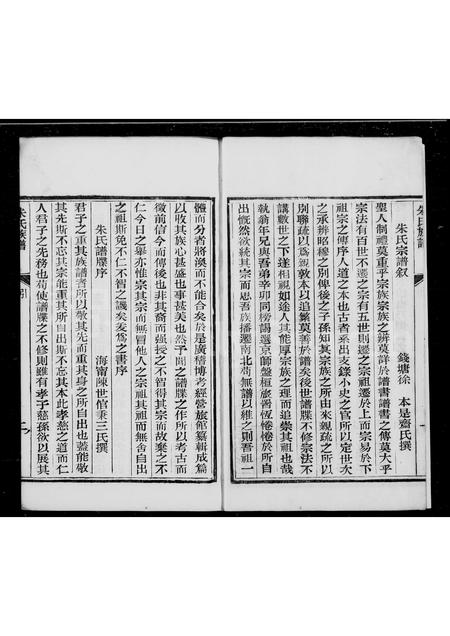 朱氏宗譜叙
錢塘徐 本是齋氏撰
聖人制禮莫重乎宗族宗族之辨莫詳於譜書譜書之傳莫大乎
宗法有百世不遷之宗有五世則遷之宗祖遷於上而宗易於下
祖宗之傳序人道之本也古者系出支錄小史之官所以定世次
之承辨昭穆之別俾後之子孫知其宗族之所出來親疏之所以
別聯疏以爲親敦本以追榮莫善於譜矣後世譜牒不修宗法不
講數世之下遂相視如途人其能厚宗族之理而追崇其祖也哉
執翁年兄與吾弟辛卯同榜謁選京師盤桓旅舍恆惓惓於所自
出慨然欲統其宗而思吾族播遷南北苟無譜以維之則吾祖一
體而分者將渙而不能合矣於是廣稽博考經營旅館纂輯成篇
以收其族心甚盛也事甚美也然予聞之譜牒之作所以考古而
徵前信今而傳後也非其裔而强授之不智得其宗而故棄之不
仁今日之舉亦惟宗其宗而無冒他人之宗祖其祖而無舍自出
之祖斯免不仁不智之譏矣爰爲之書序
朱氏譜牒序
海甯陳世倌秉三氏撰
君子之重其族譜者所以敬其先而重其身之所自出也蓋能敬
其先斯不忘其宗能重其所自出斯不忘其本此孝慈之道而仁
人君子之先務也苟使譜牒之不修則雖有孝子慈孫欲以展其
朱氏族譜
引
二